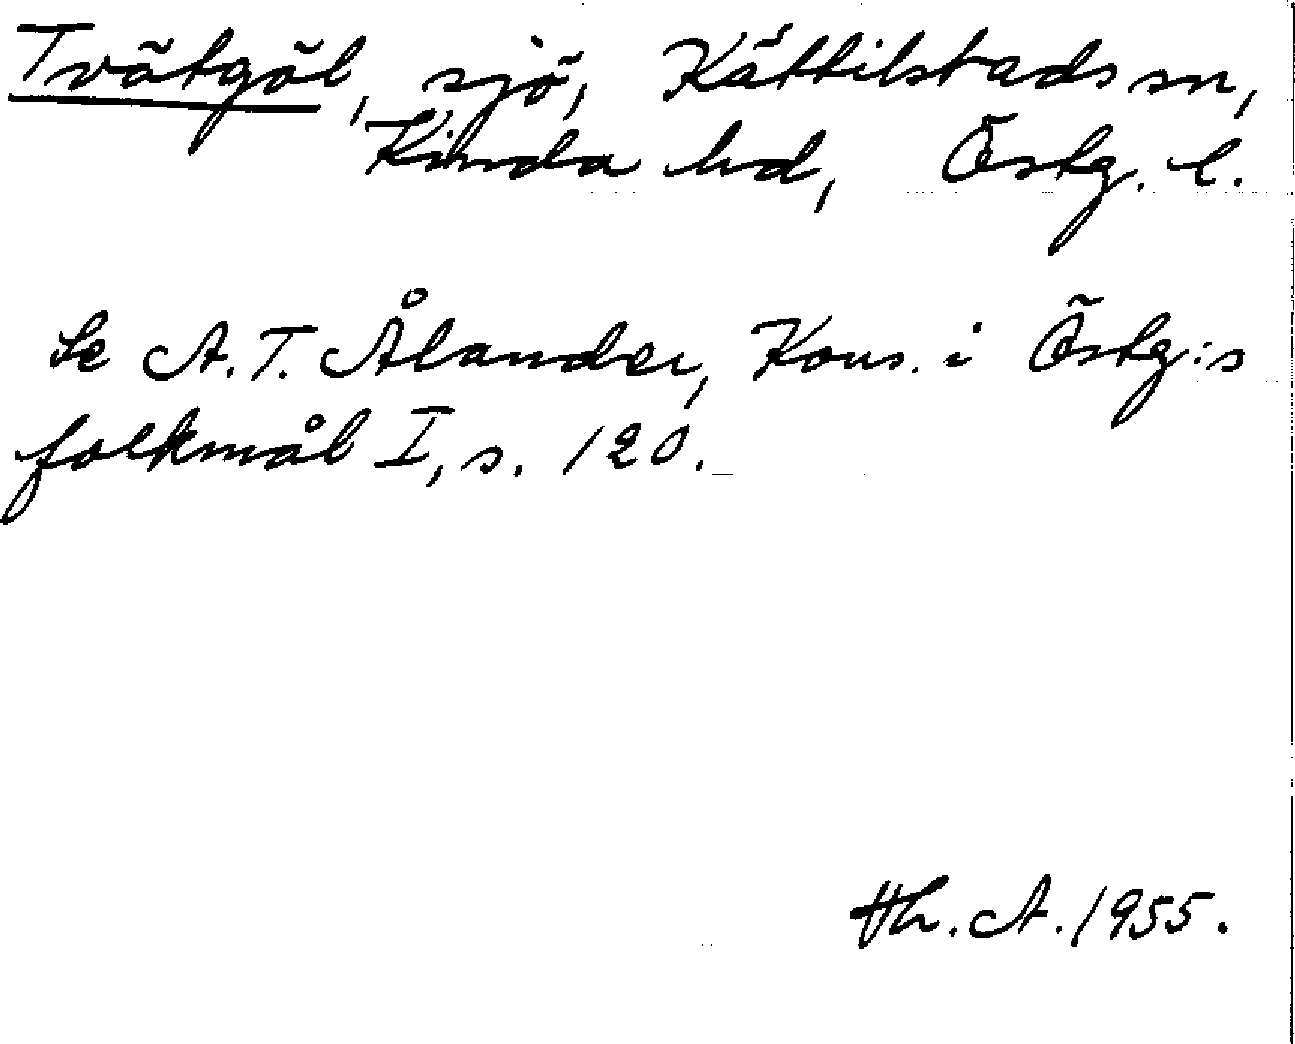 Tvätgöl, sjö, Kättilstads sn,
Kinda hd, Östg. l.
Se A. T. Ålander, Kons. i Östg:s
folkmål I, s. 120.
Hh. A. 1955.